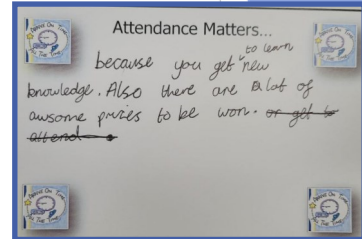 Attendance Matters...
because you get to learn new
knowledge. Also there are alot of
awsome prizes to be won. or get to
attend